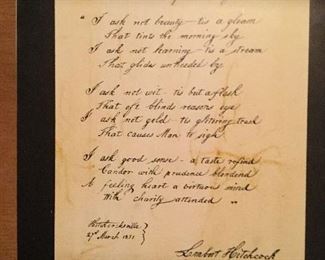 " I ask not beauty – tis a gleam
That tints the morning sky
I ask not learning – tis a stream
That glides unheeded by
I ask not wit tis but a flash
That oft blinds reasons eye
I ask not gold tis glittering trash
That causes Man to sigh
I ask good sense – a taste refind
Candor with prudence blendend
A feeling heart a virtuous mind
With charity attended "
Hitchcocksville
27th March 1831
Lambert Hitchcock